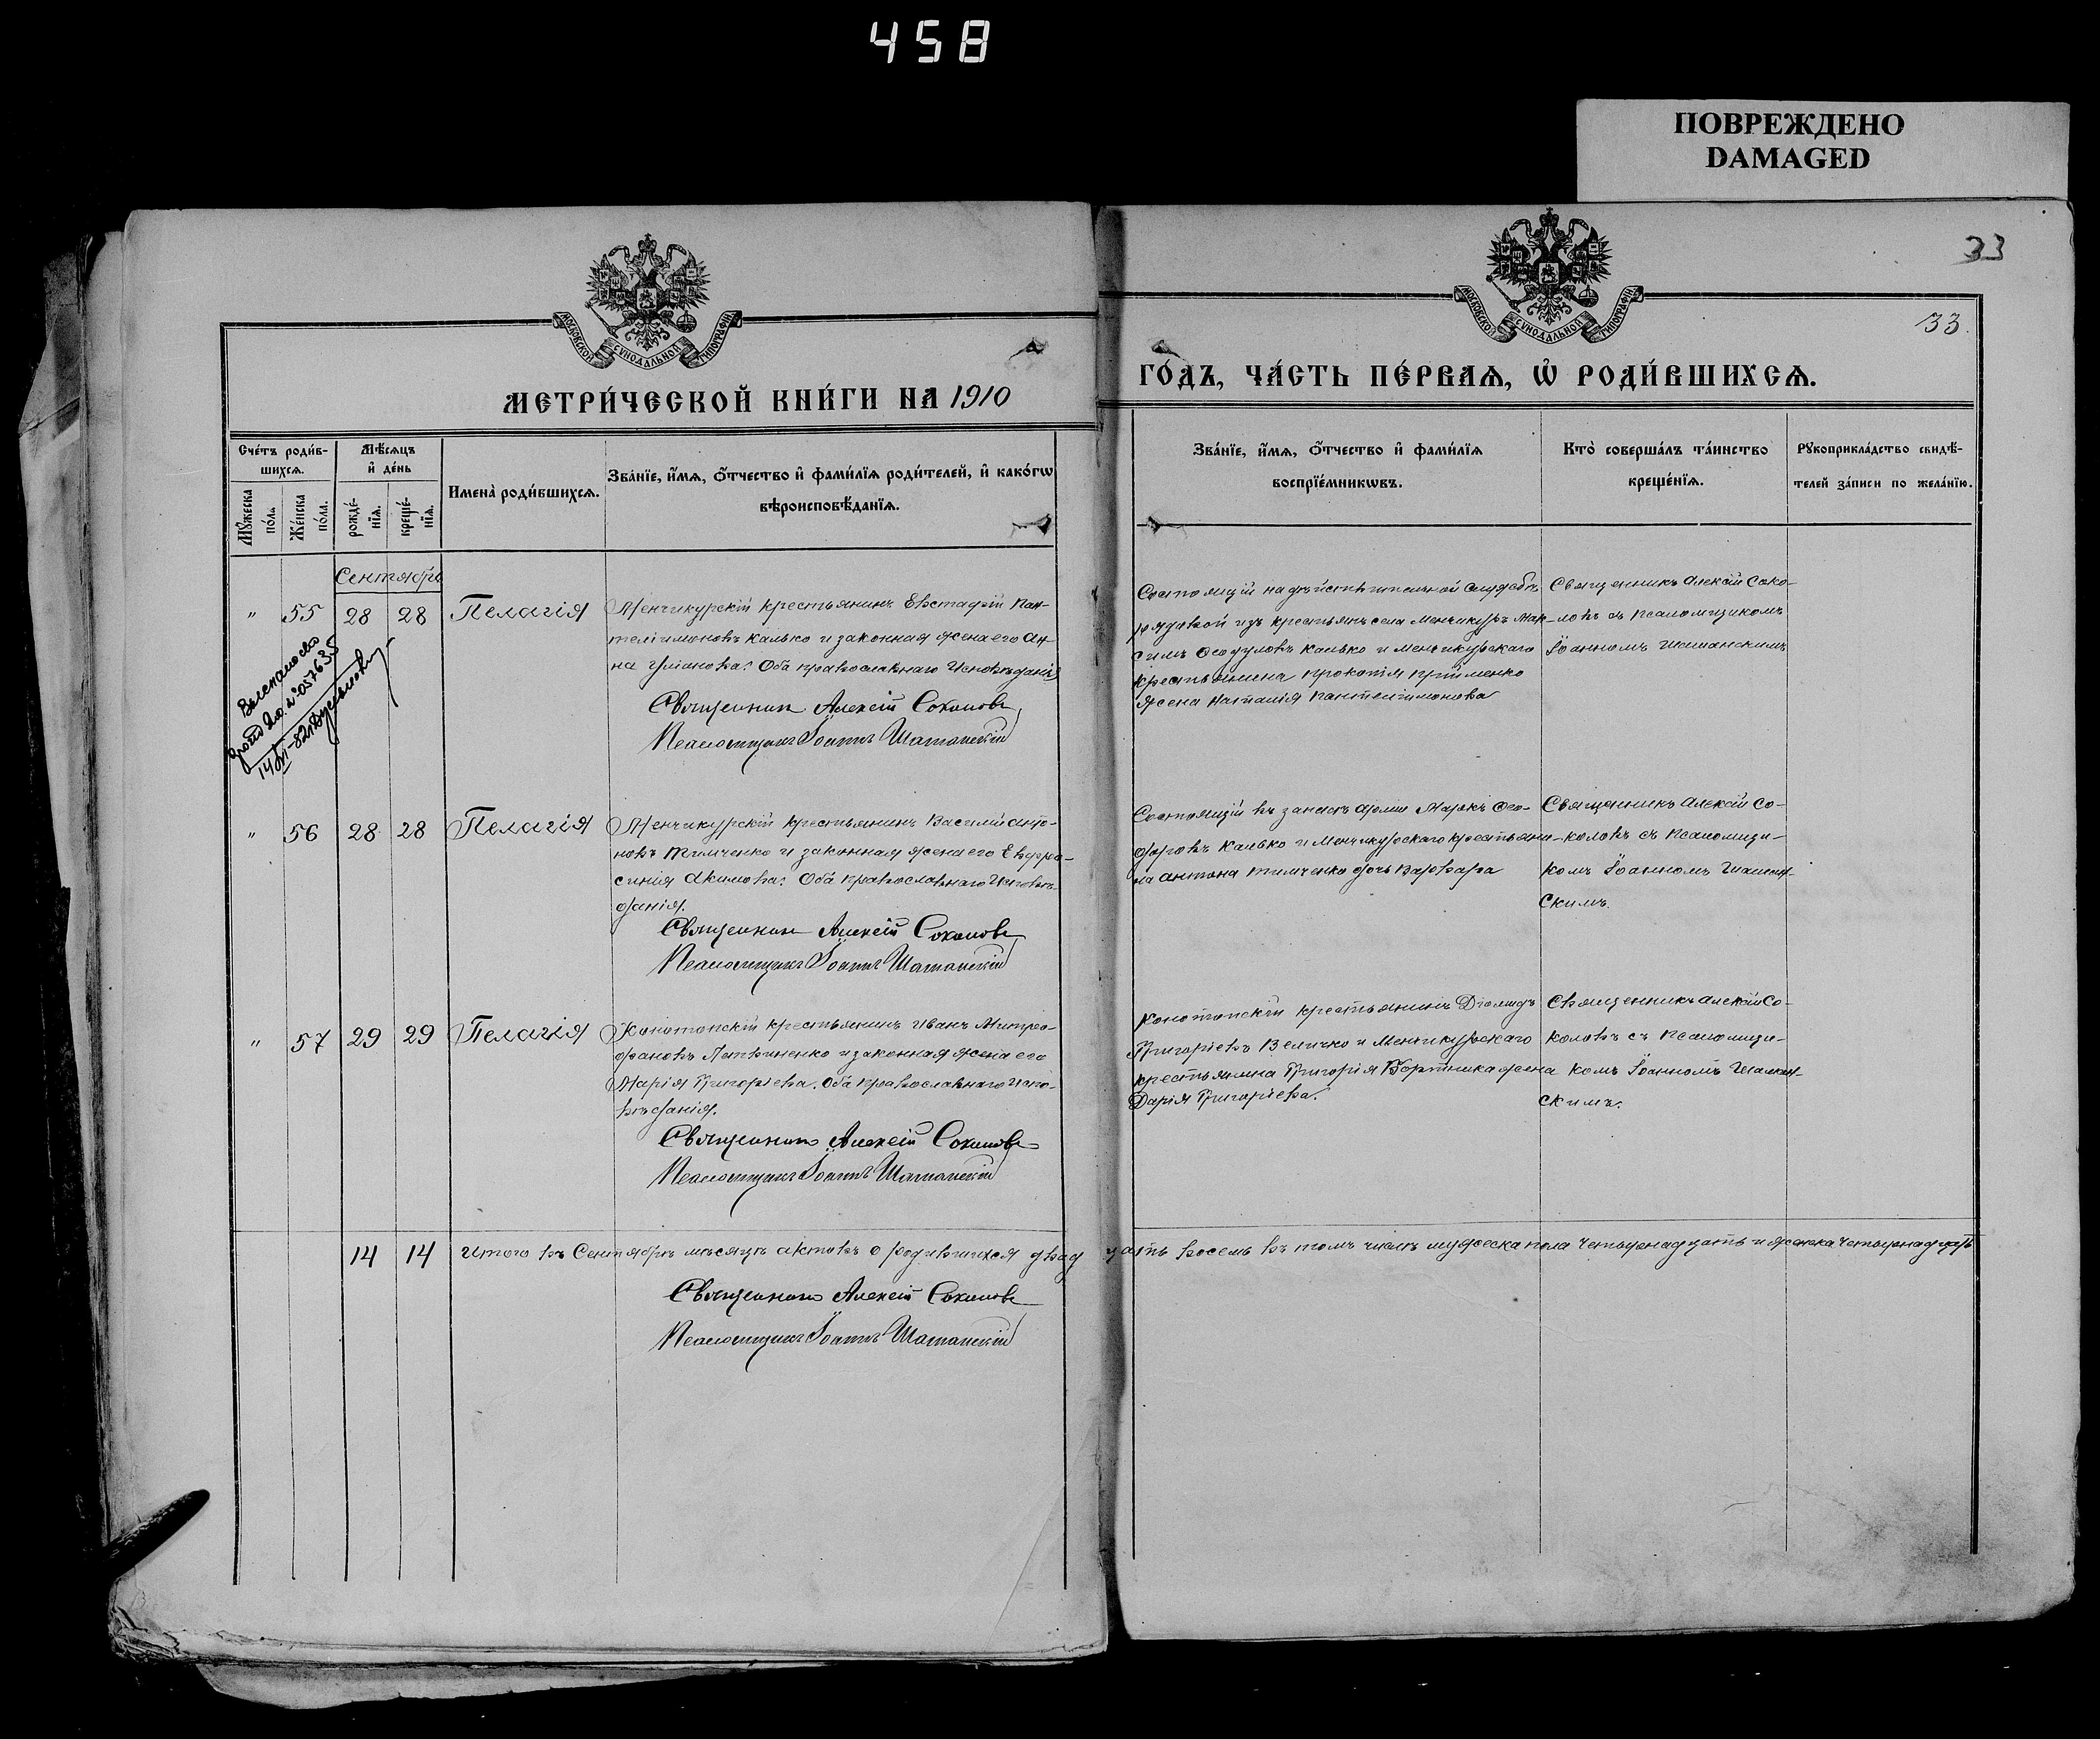 458
ПОВРЕЖДЕНО
DAMAGED
33
33.
МОСКОВСКОЙ СѴНОДАЛЬНОЙ ТИПОГРАФІИ
МОСКОВСКОЙ СѴНОДАЛЬНОЙ ТИПОГРАФІИ
МЕТРИ́ЧЕСКОЙ КНИ́ГИ НА 1910
ГО́ДЪ, ЧА́СТЬ ПЕ́РВАѦ, Ѡ҆ РОДИ́ВШИХСѦ.
Сче́тъ роди́в-
шихсѧ.
Мѹ́жеска
по́ла.
Же́нска
по́ла.
Мѣ́сѧцъ
и҆ де́нь
рожде́-
нїѧ.
креще́-
нїѧ.
Имена̀ роди́вшихсѧ.
Зва́нїе, и҆́мѧ, ѻ҆́тчество и҆ фами́лїѧ роди́телей, и҆ како́гѡ
вѣроисповѣ́данїѧ.
Зва́нїе, и҆́мѧ, ѻ҆́тчество и҆ фами́лїѧ
воспрїе́мникѡвъ.
Кто̀ соверша́лъ та́инство
креще́нїѧ.
Рѹкоприкла́дство свидѣ́-
телей за́писи по жела́нїю.
Сентябрь
" 55 28 28 Пелагія
Менчикурскій крестьянинъ Евстафій Пан-
телеимоновъ Калько и законная жена его Ан-
на Уліанова: Оба православнаго Исповѣданія
Священникъ Алексій Соколовъ
Псаломщикъ Іоаннъ Шаманскій
Состоящій на дѣйствительной службѣ
рядовой изъ крестьянъ села Менчикуръ Мак-
симъ Ѳеодуловъ Калько и Менчикурскаго
крестьянина Прокопія Прійменко
жена Наталія Пантелеимонова
Священникъ Алексій Соко-
ловъ съ Псаломщикомъ
Іоанномъ Шаманскимъ
14
" 56 28 28 Пелагія
Менчикурскій крестьянинъ Василій Анто-
новъ Тимченко и законная жена его Евфро-
синія Акимова: Оба православнаго Исповѣ-
данія.
Священникъ Алексій Соколовъ
Псаломщикъ Іоаннъ Шаманскій
Состоящій въ запасѣ арміи Маркъ Ѳео-
доровъ Калько и Менчикурскаго крестьяни-
на Антона Тимченко дочь Варвара
Священникъ Алексій Со-
коловъ съ Псаломщи-
комъ Іоанномъ Шаман-
скимъ.
" 57 29 29 Пелагія
Конотопскій крестьянинъ Иванъ Митро-
фановъ Литвиненко и законная жена его
Марія Григоріева. Оба православнаго Испо-
вѣданія.
Священникъ Алексій Соколовъ
Псаломщикъ Іоаннъ Шаманскій
Конотопскій крестьянинъ Діомидъ
Григоріевъ Величко и Менчикурскаго
крестьянина Григорія Бортника жена
Дарія Григоріева.
Священникъ Алексій Со-
коловъ съ Псаломщи-
комъ Іоанномъ Шаман-
скимъ.
14 14 Итого въ Сентябрѣ мѣсяцѣ актовъ о родившихся двадцать восемь въ томъ числѣ мужеска пола четырнадцать и женска четырнадцать
Священникъ Алексій Соколовъ
Псаломщикъ Іоаннъ Шаманскій